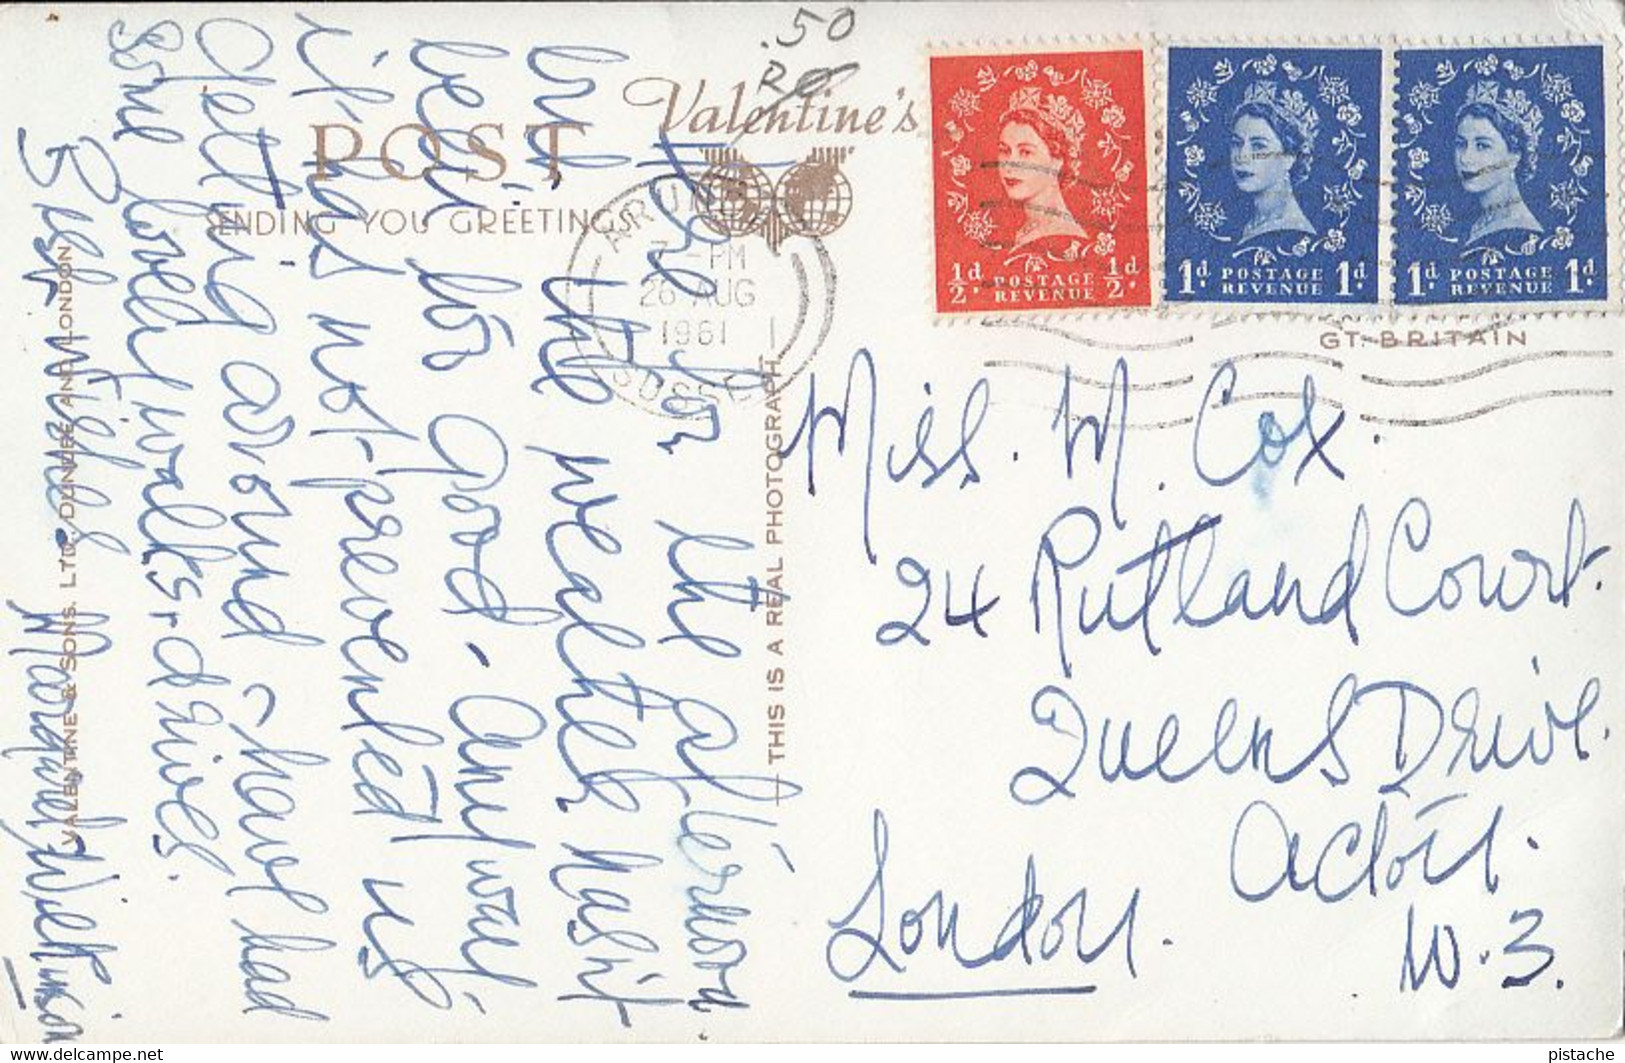 .50
Valentine's
POST
ENDING YOU GREETINGS
ARUN
7-PM
26 AUG
1961
SUSSE
½d. POSTAGE REVENUE ½d.
1d. POSTAGE REVENUE 1d.
1d. POSTAGE REVENUE 1d.
GT. BRITAIN
Here for the afternoon
but the weather hasn't
been too good. Anyway
it has not prevented us
getting around & have had
some lovely walks & drives.
Best wishes
Margaret Wilkinson
THIS IS A REAL PHOTOGRAPH
VALENTINE & SONS. LTD., DUNDEE AND LONDON
Miss. M. Cox.
24 Rutland Court.
Queens Drive.
Acton.
London. W.3.
www.delcampe.net
pistache